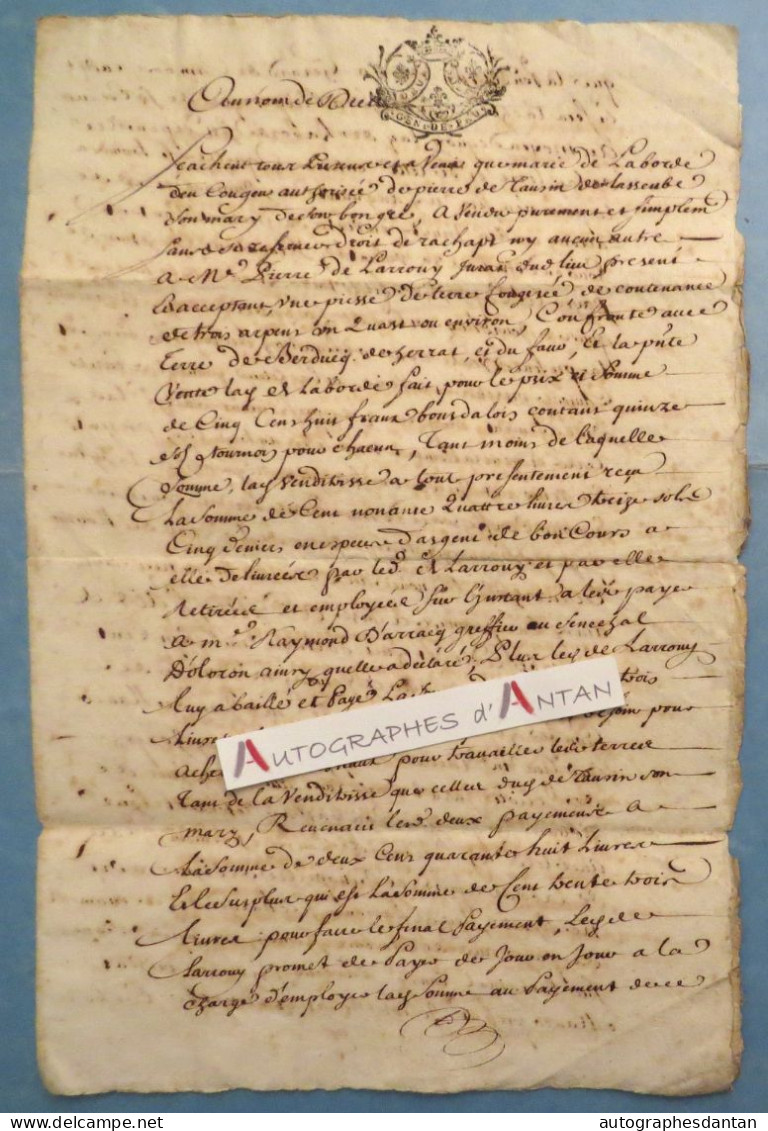 Au nom de Dieu
GEN DE PAU
Scachent tous presens et a Venir que marie de Laborde
authorisée de pierre de Tausin de lasseube
son mary de son bon gré, A Vendu purement et simplem
sans reserve droit de rachapt ny aucun autre
A Me Pierre de Larrouy Jurat dud lieu present
Et acceptant, une piesse de terre fougere de contenance
de trois arpens un Quart ou environ, Confronte avec
terre de Berducq de serrat, et du faur, Et la pnte
Vente lad de Laborde fait pour le prix et somme
de Cinq Cens huit francx bourdalois contant quinze
sols tournois pour chacun, Tant moins de laquelle
somme, lad Venditrisse a tout presentement reçu
La somme de Cent nonante Quattre livres treize sols
Cinq deniers en espece d'argent de bon Cours a
elle delivrée par led de Larrouy et par elle
Retirée et employée sur l'instant a paye
A me Raymond D'arracq greffier au senechal
D'oloron ainsy quelle a declaré, Plus led de Larrouy
luy a baillé et Payé La trois
Livres besoin pour
ache pour travailler les terres
Tant de la Venditrisse que celles dud de Tausin son
mary, Revenant les deux payemens A
La somme de deux Cens quarante huit Livres
Et le surplus qui est La somme de Cent trente trois
Livres pour faire le final Payement, Led de
Larrouy promet de Payer de Jour en Jour a la
charge d'employer lad somme au Payement de ce
AUTOGRAPHES d'ANTAN
autographesdantan